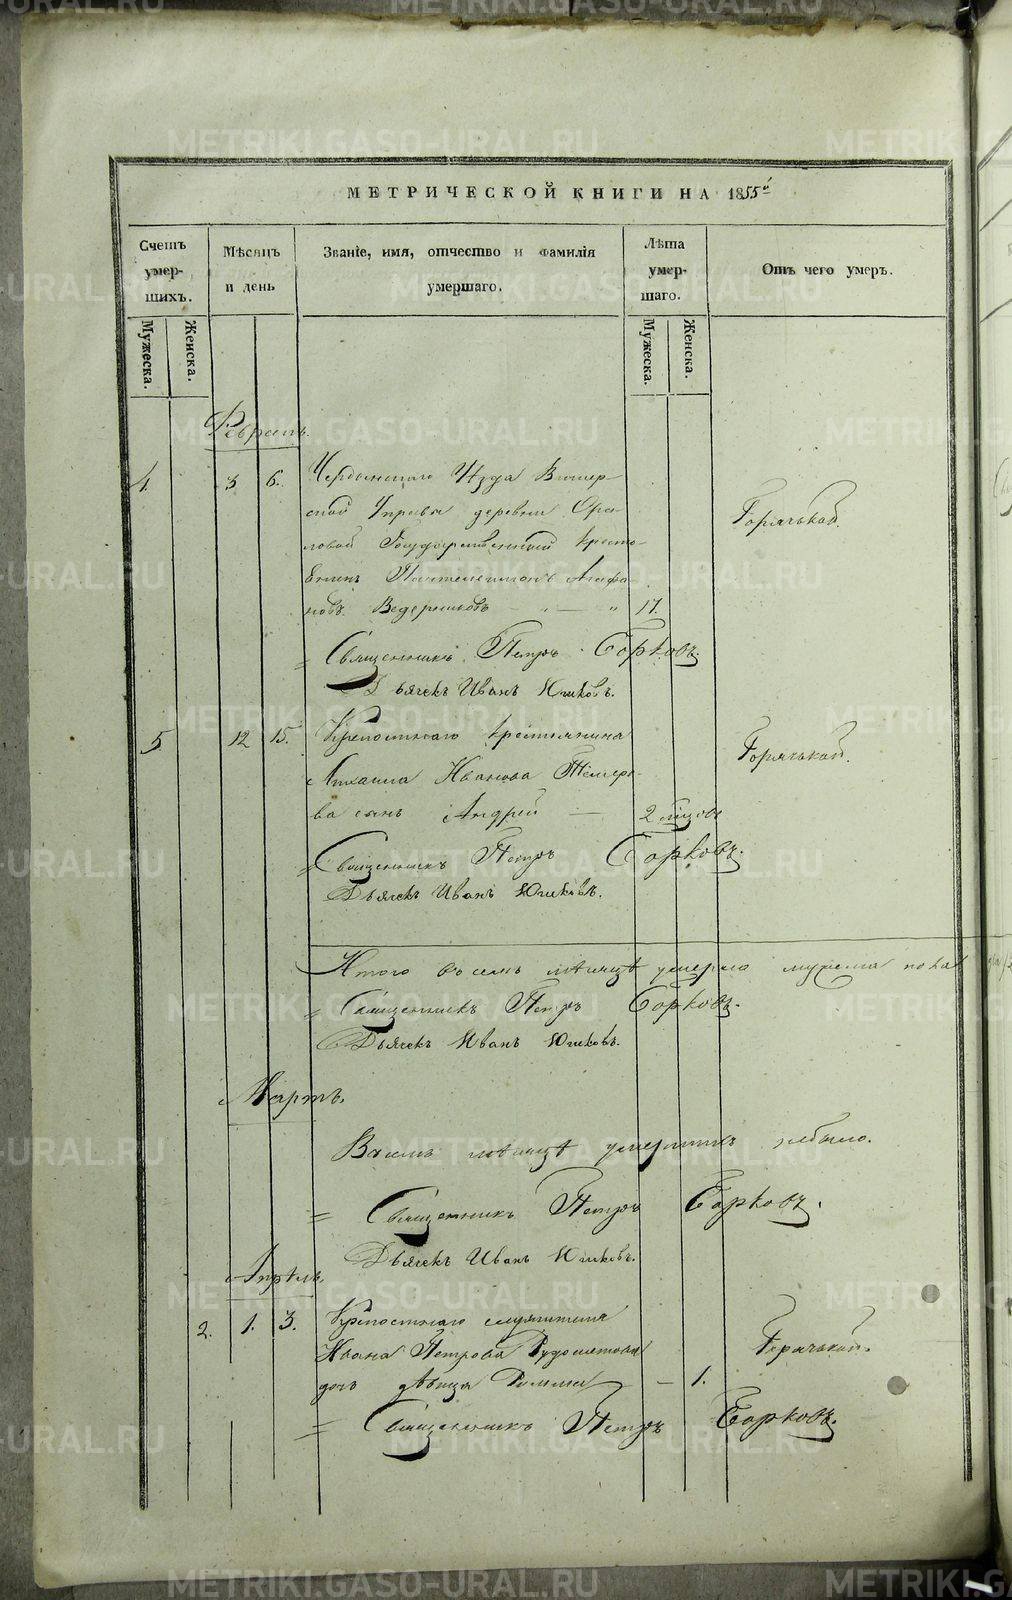 МЕТРИЧЕСКОЙ КНИГИ НА 1855й
Счетъ умер-шихъ.
Мужеска.
Женска.
Мѣсяцъ и день
Званіе, имя, отчество и фамилія умершаго.
Лѣта умер-шаго.
Мужеска.
Женска.
Отъ чего умеръ.
Февраль.
4. 3 6. Чердынскаго Уѣзда Вишер-
ской Управы деревни Ора-
ловой Государственный кресть-
янинъ Пантелеимонъ Агафо-
новъ Ведерниковъ — „ — „ 17.
Горячькой.
= Священникъ Петръ Борковъ.
Дьячекъ Иванъ Юшковъ.
5 12 15. Крѣпостнаго крестьянина
Михаила Иванова
ва сынъ Андрей — 2 мѣсяца
Горячькой.
= Священникъ Петръ Борковъ.
Дьячекъ Иванъ Юшковъ.
Итого въ семъ мѣсяцѣ умерло мужеска пола
= Священникъ Петръ Борковъ.
Дьячекъ Иванъ Юшковъ.
Мартъ.
Въ семъ мѣсяцѣ умершихъ небыло.
= Священникъ Петръ Борковъ.
Дьячекъ Иванъ Юшковъ.
Апрѣль.
2. 1. 3. Крѣпостнаго служителя
Ивана Петрова Рудометова
дочь дѣвица — 1.
Горячькой.
= Священникъ Петръ Борковъ.
METRIKI.GASO-URAL.RU